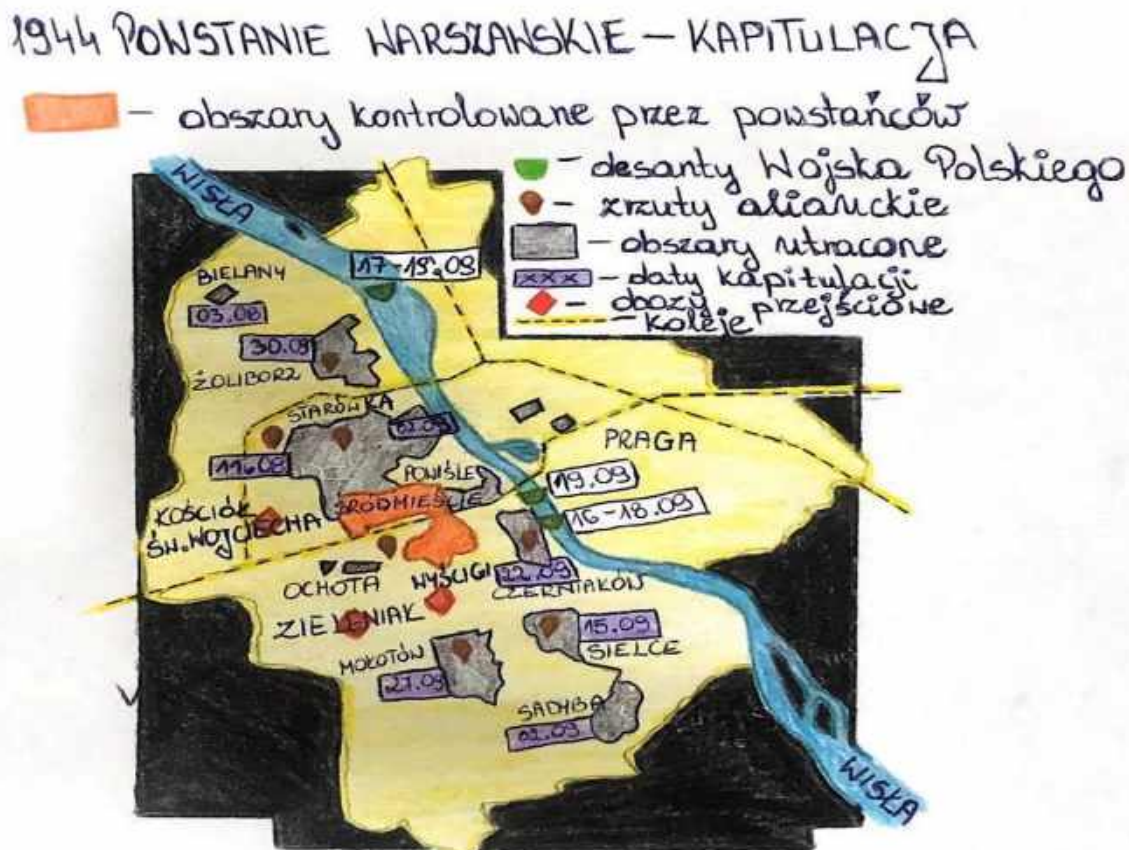 1944 POWSTANIE WARSZAWSKIE – KAPITULACJA
– obszary kontrolowane przez powstańców
– desanty Wojska Polskiego
– zrzuty alianckie
– obszary utracone
xxx – daty kapitulacji
– obozy przejściowe
– koleje
WISŁA
17-19.09
BIELANY
03.08
30.09
ŻOLIBORZ
STARÓWKA
02.09
11.08
POWIŚLE
PRAGA
19.09
16-18.09
ŚRÓDMIEŚCIE
KOŚCIÓŁ
ŚW. WOJCIECHA
OCHOTA
WYŚCIGI
22.09
CZERNIAKÓW
ZIELENIAK
15.09
SIELCE
MOKOTÓW
27.09
SADYBA
02.09
WISŁA